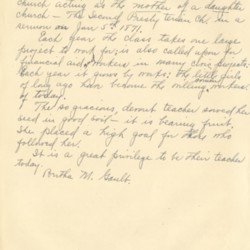 church acting as the mother of a daughter
church - The Second Presbyterian Ch! in a
sermon on Jan 5th 1871.
Each year the class takes one large
project to work for, is also called upon for
financial aid & workers in many civic projects.
Each year it grows by works; the little girls
of long ago have become the willing workers
of today.
The so gracious, devout teacher sowed her
seed in good soil - it is bearing fruit.
She placed a high goal for those who
followed her.
It is a great privilege to be their teacher
today.
Bertha M. Gault.